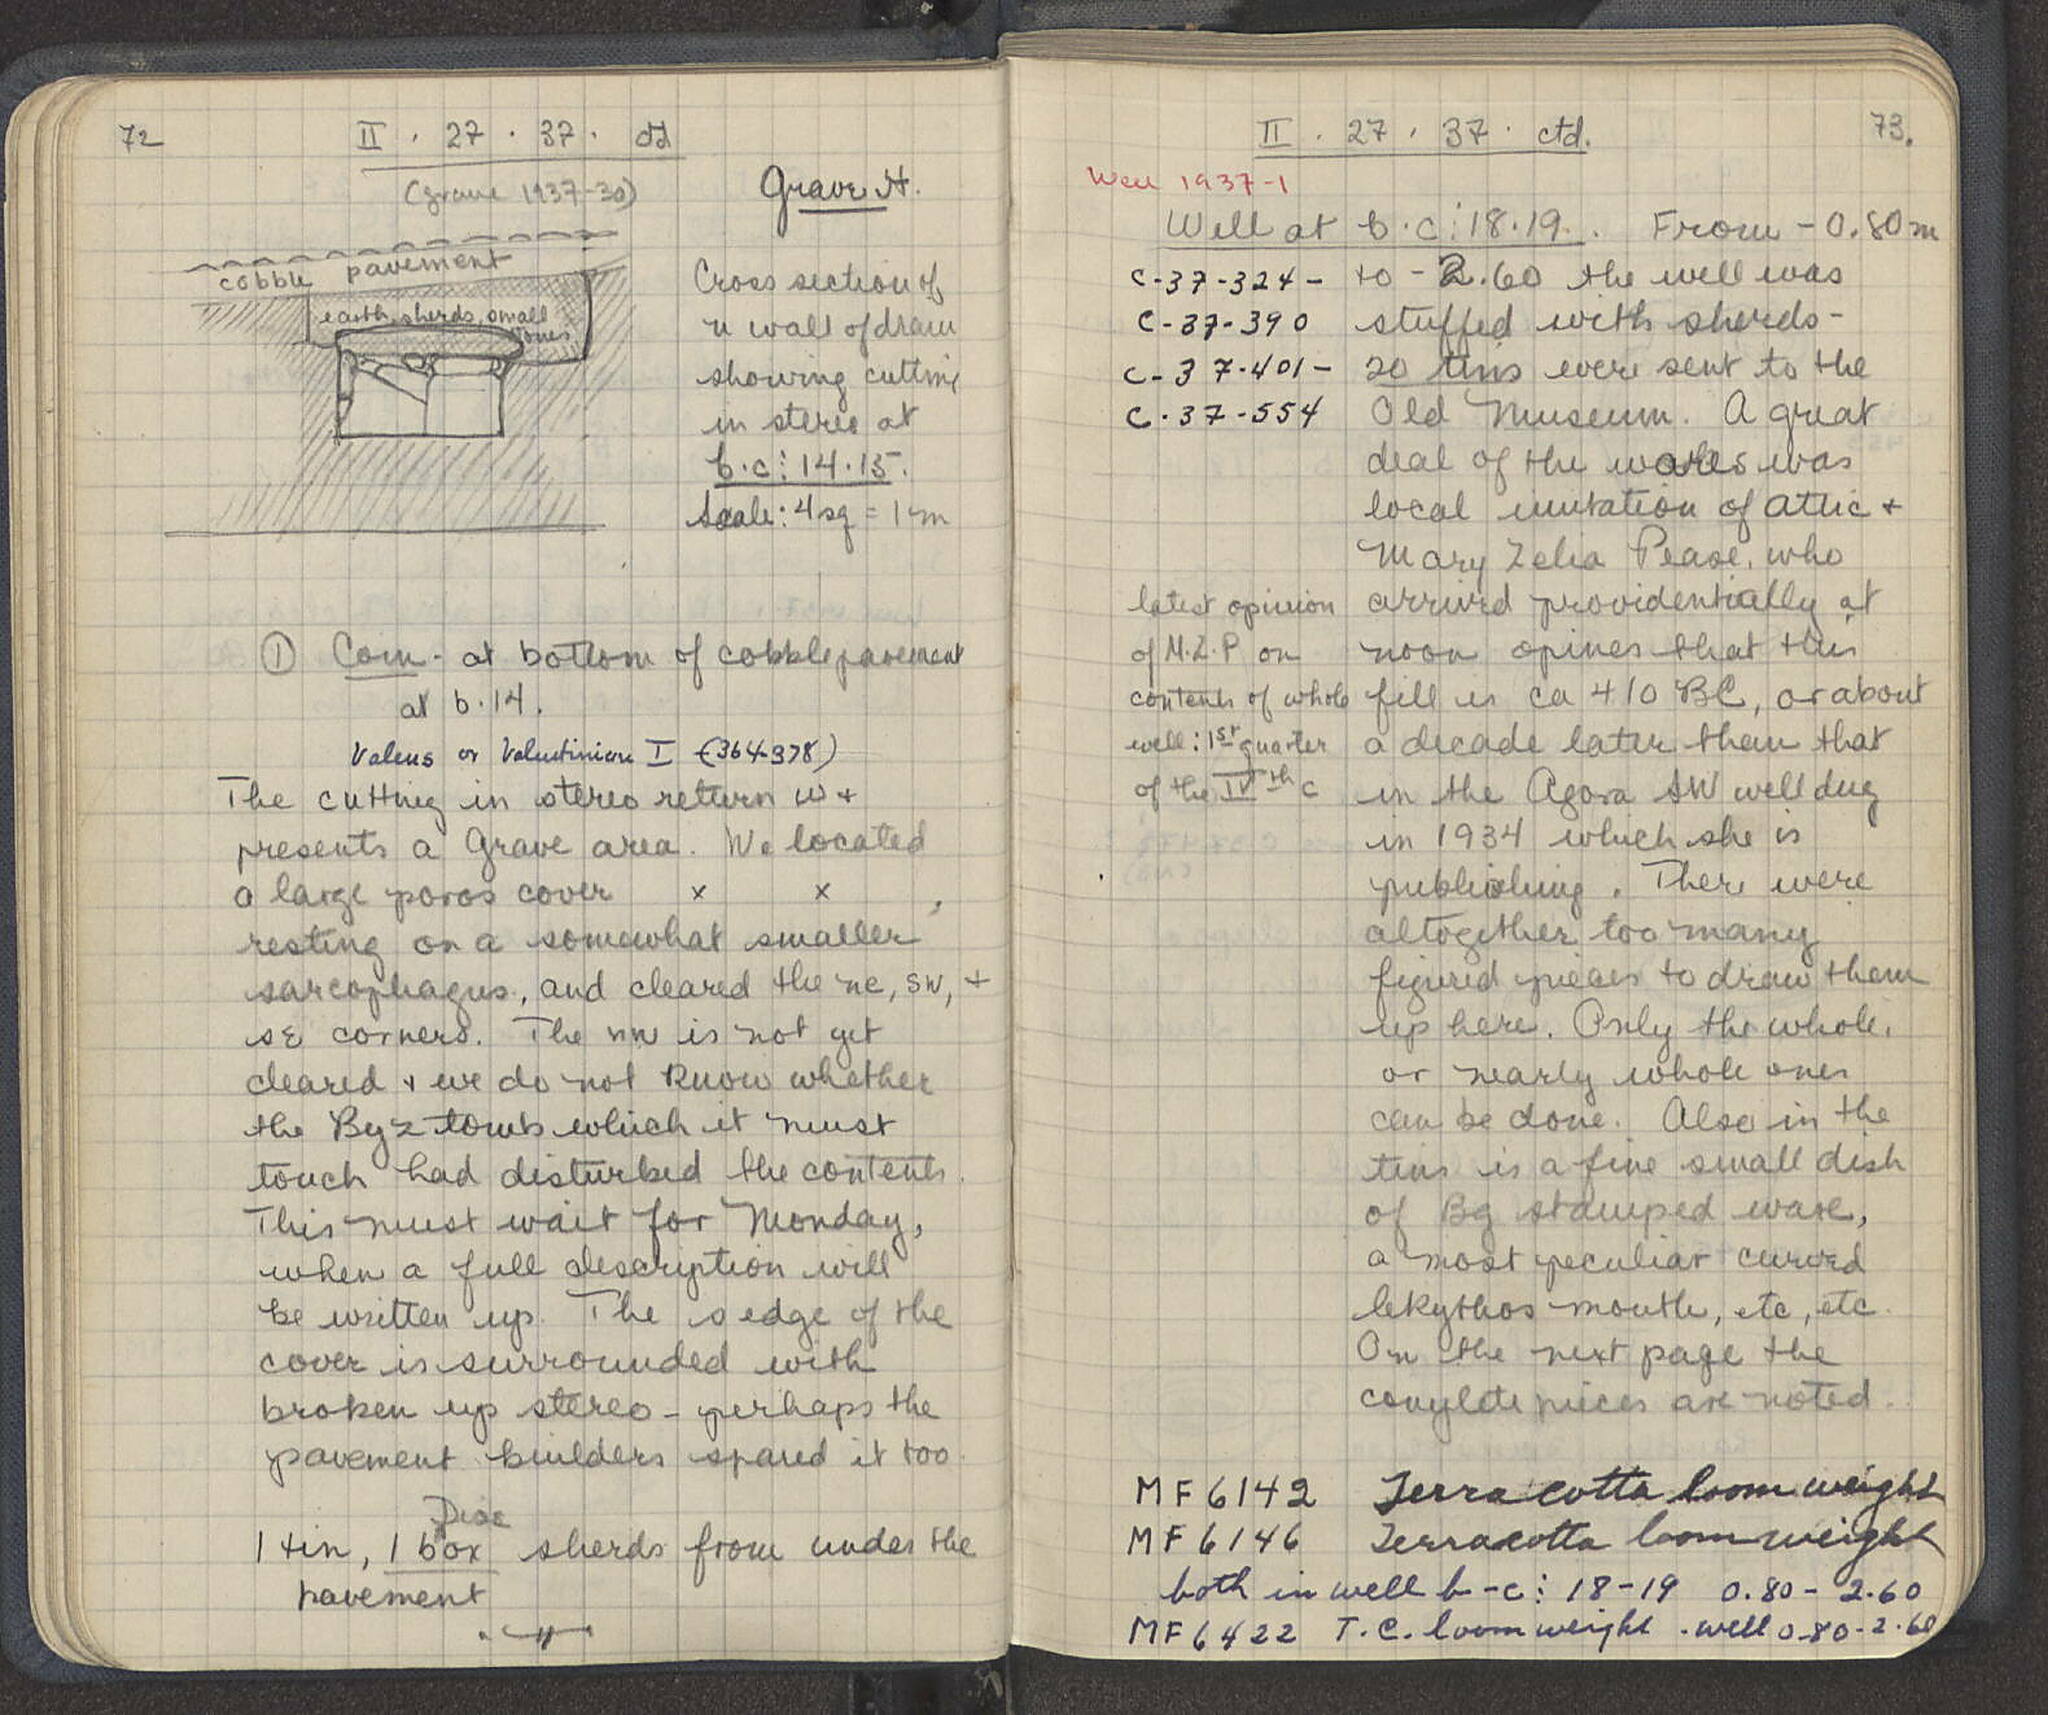 72
II . 27 . 37 . ctd
(grave 1937-30)
Grave A.
cobble pavement
earth, sherds, small
stones
Cross section of
n wall of drain
showing cutting
in stereo at
b.c: 14.15.
Scale: 4 sq = 1 m
① Coin - at bottom of cobble pavement
at b.14.
Valens or Valentinian I (364-378)
The cutting in stereo return w +
presents a Grave area. We located
a large poros cover x x ,
resting on a somewhat smaller
sarcophagus, and cleared the ne, sw, +
se corners. The nw is not yet
cleared + we do not know whether
the Byz tomb which it must
touch had disturbed the contents.
This must wait for Monday,
when a full description will
be written up. The s edge of the
cover is surrounded with
broken up stereo - perhaps the
pavement builders spared it too.
Disc
1 tin, 1 box sherds from under the
pavement
73.
II . 27 . 37 . ctd.
Well 1937-1
Well at b.c: 18.19. From -0.80m
C-37-324- to -2.60 the well was
C-37-390 stuffed with sherds-
C-37-401- 20 tins were sent to the
C-37-554 Old Museum. A great
deal of the wares was
local imitation of Attic +
Mary Zelia Pease, who
latest opinion arrived providentially at
of M.Z.P on noon opines that this
contents of whole fill is ca 410 BC, or about
well: 1st quarter a decade later than that
of the IVth c in the Agora SW well dug
in 1934 which she is
publishing. There were
altogether too many
figured pieces to draw them
up here. Only the whole,
or nearly whole ones
can be done. Also in the
tins is a fine small dish
of Bg stamped ware,
a most peculiar curved
lekythos mouth, etc, etc.
On the next page the
complete pieces are noted.
MF 6142 Terracotta loom weight
MF 6146 Terracotta loom weight
both in well b-c: 18-19 0.80 - 2.60
MF 6422 T.C. loom weight . well 0.80-2.60